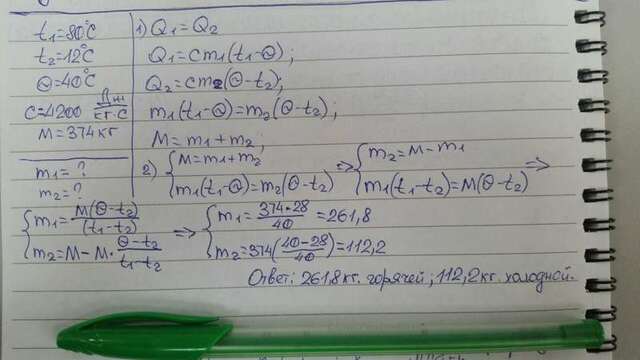 t₁=80°C
t₂=12°C
Θ=40°C
C=4200 Дж/кг·С
M=374 кг
m₁=?
m₂=?
1) Q₁=Q₂
Q₁=Cm₁(t₁-Θ);
Q₂=Cm₂(Θ-t₂);
m₁(t₁-Θ)=m₂(Θ-t₂);
M=m₁+m₂;
2) {M=m₁+m₂ => {m₂=M-m₁ =>
m₁(t₁-Θ)=m₂(Θ-t₂) m₁(t₁-t₂)=M(Θ-t₂)
{m₁=M(Θ-t₂)/(t₁-t₂) => {m₁=374·28/40=261,8
m₂=M-M·Θ-t₂/t₁-t₂ m₂=374(40-28/40)=112,2
Ответ: 261,8кг. горячей; 112,2кг. холодной.